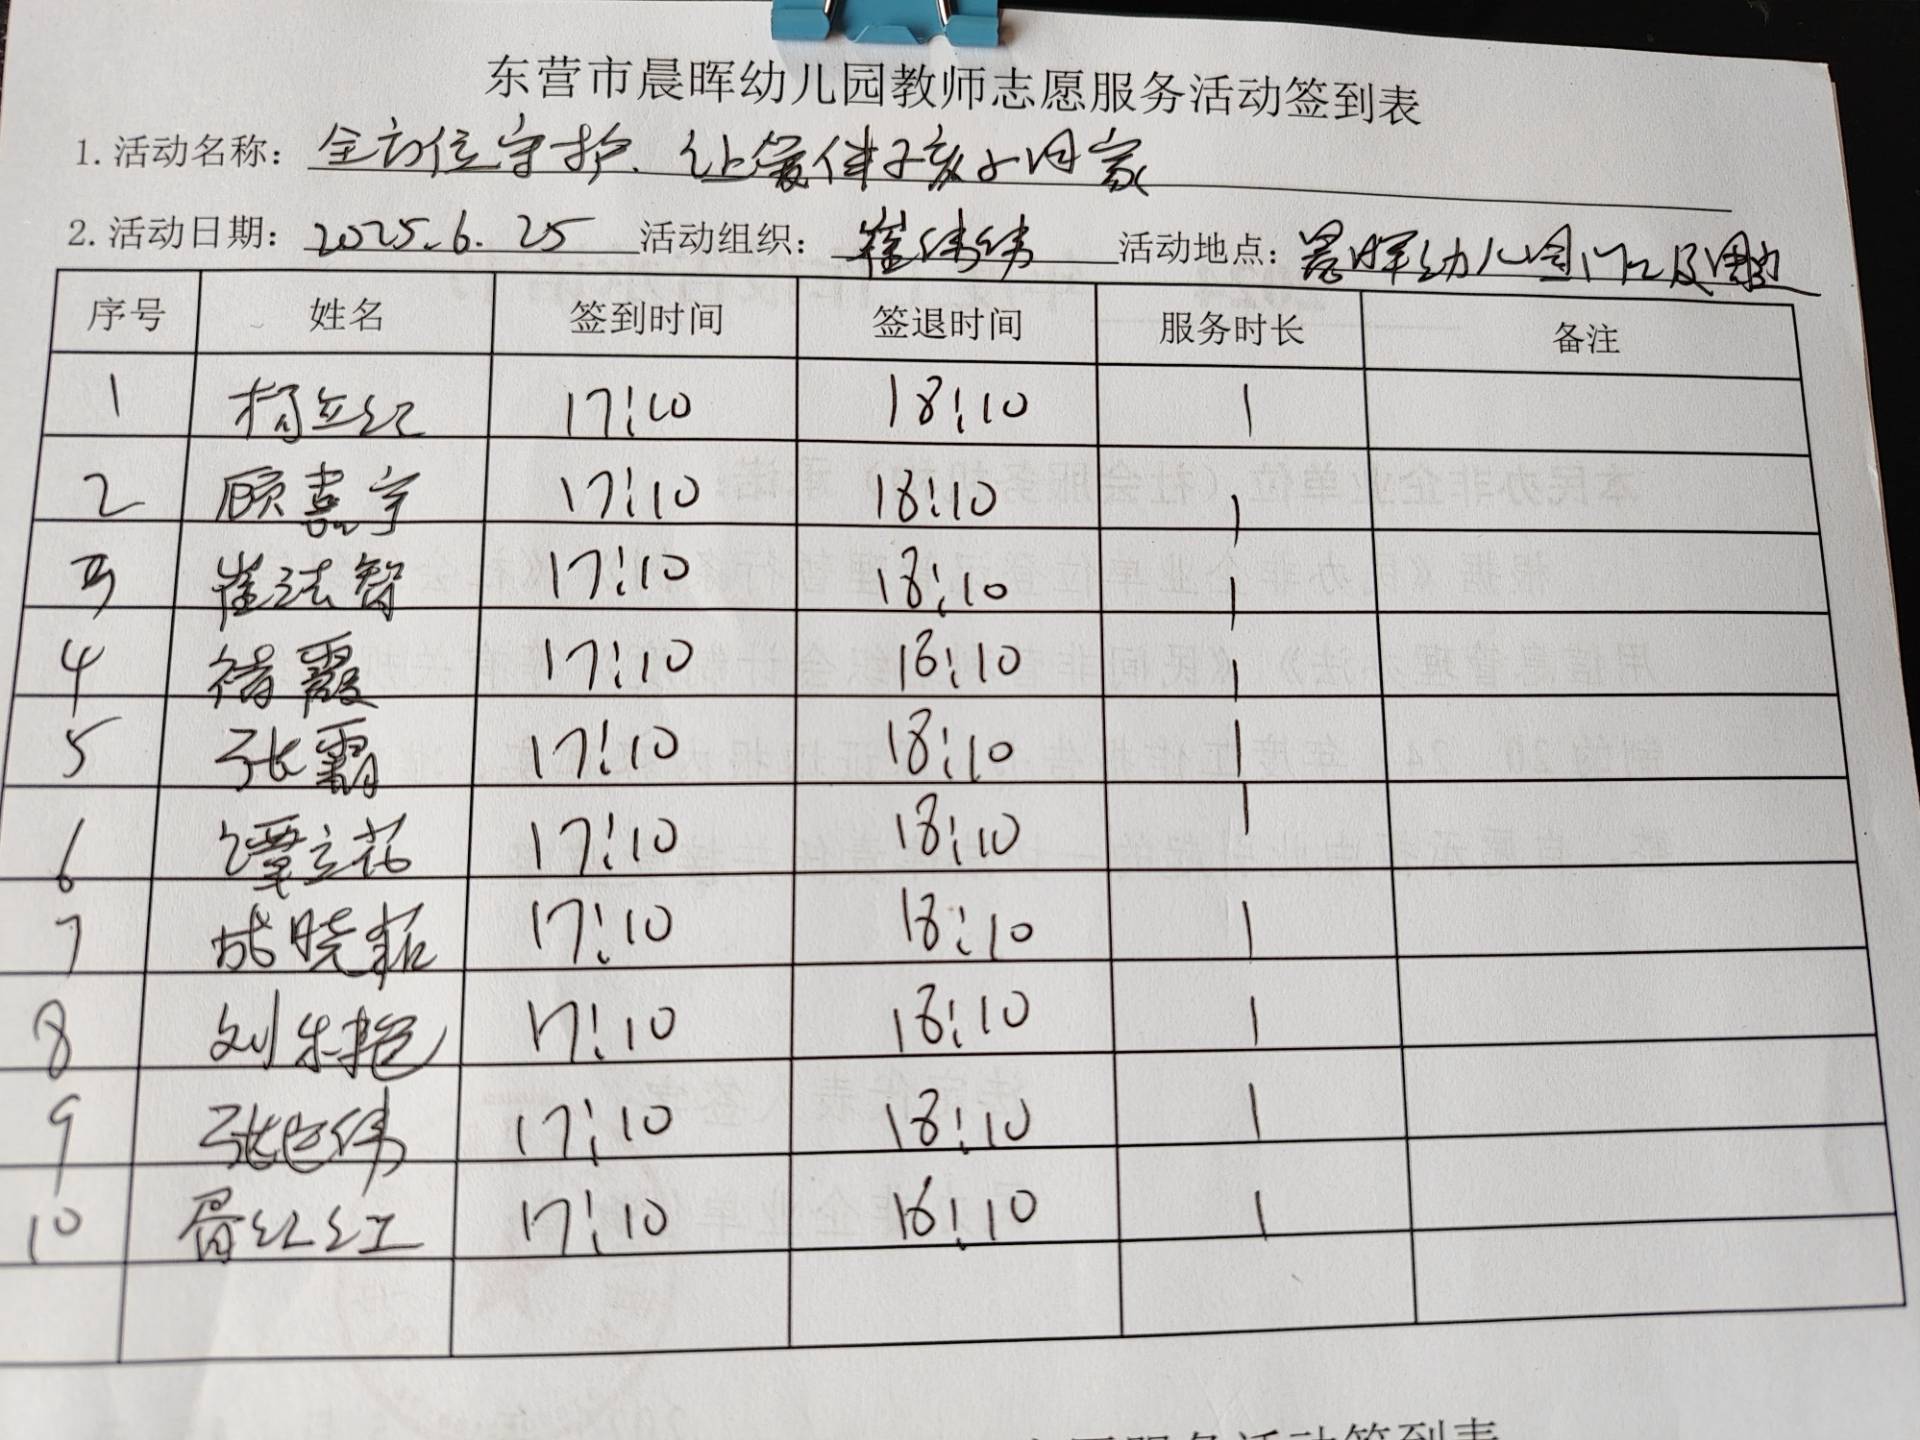 东营市晨晖幼儿园教师志愿服务活动签到表
1. 活动名称：全方位守护、让爱伴孩子回家
2. 活动日期：2025.6.25 活动组织：崔伟伟 活动地点：晨晖幼儿园门口及周边
序号 姓名 签到时间 签退时间 服务时长 备注
1 杨立红 17:10 18:10 1
2 顾嘉宇 17:10 18:10 1
3 崔法智 17:10 18:10 1
4 褚霞 17:10 18:10 1
5 张霸 17:10 18:10 1
6 谭立花 17:10 18:10 1
7 晓 17:10 18:10 1
8 刘艳 17:10 18:10 1
9 张伟 17:10 18:10 1
10 胥红红 17:10 18:10 1
志愿服务活动签到表